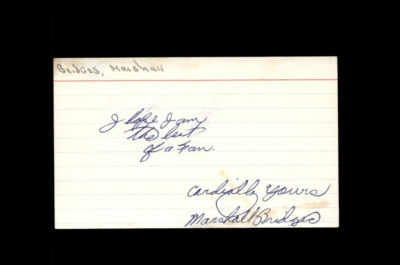 Bridges, Marshall
I hope I am
the best
of a Fan.
Cordially Yours
Marshall Bridges